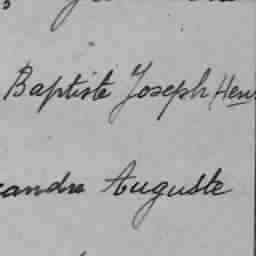 Baptiste Joseph Hen
candre Auguste